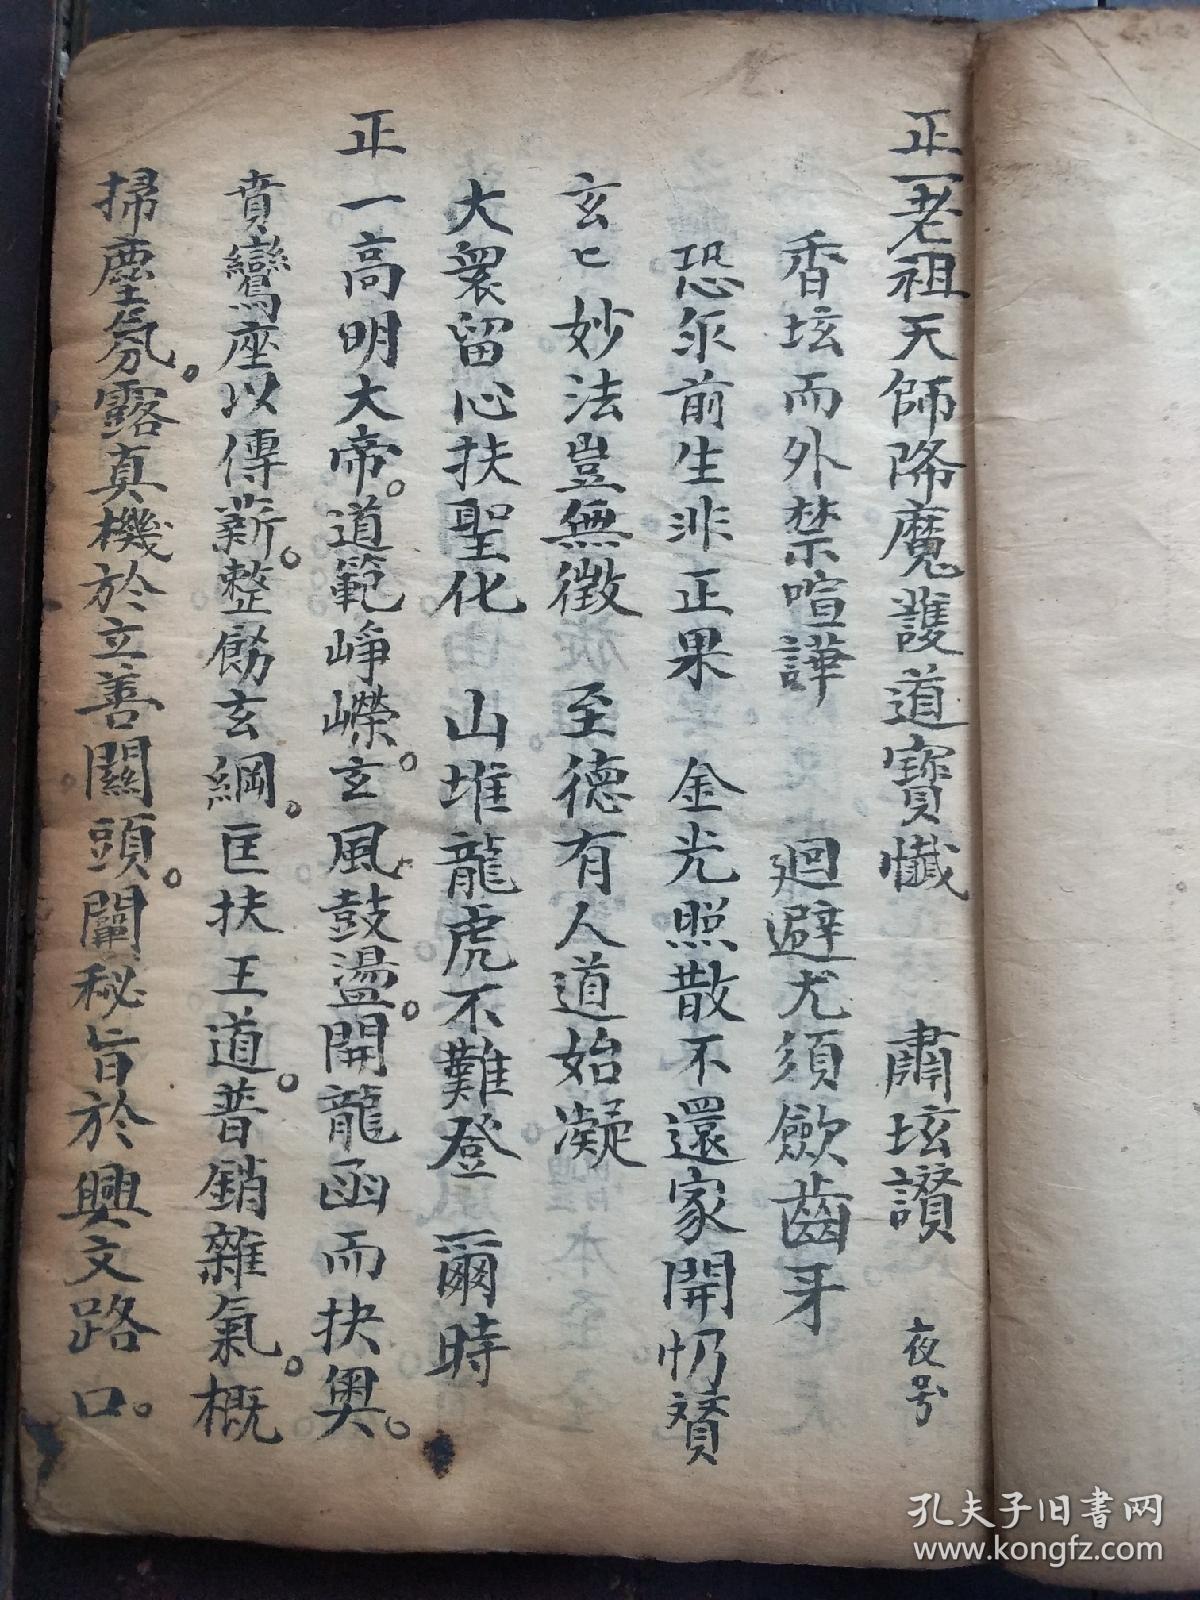 正一老祖天師降魔護道寶懺 肅坛讃 夜号
香坛而外禁喧譁 迴避尤須歛齒牙
恐乖前生非正果 金光照散不還家開忉賛
玄匕妙法豈無徵 至德有人道始凝
大衆留心扶聖化 山堆龍虎不難登 爾時
正一高明大帝。道範崢嶸。玄風鼓盪。開龍函而抉奥。
賁鸞座以傳薪。整飭玄綱。匡扶王道。普銷雜氣。概
掃塵氛。露真機於立善關頭。闡秘旨於興文路口。
孔夫子旧书网
www.kongfz.com